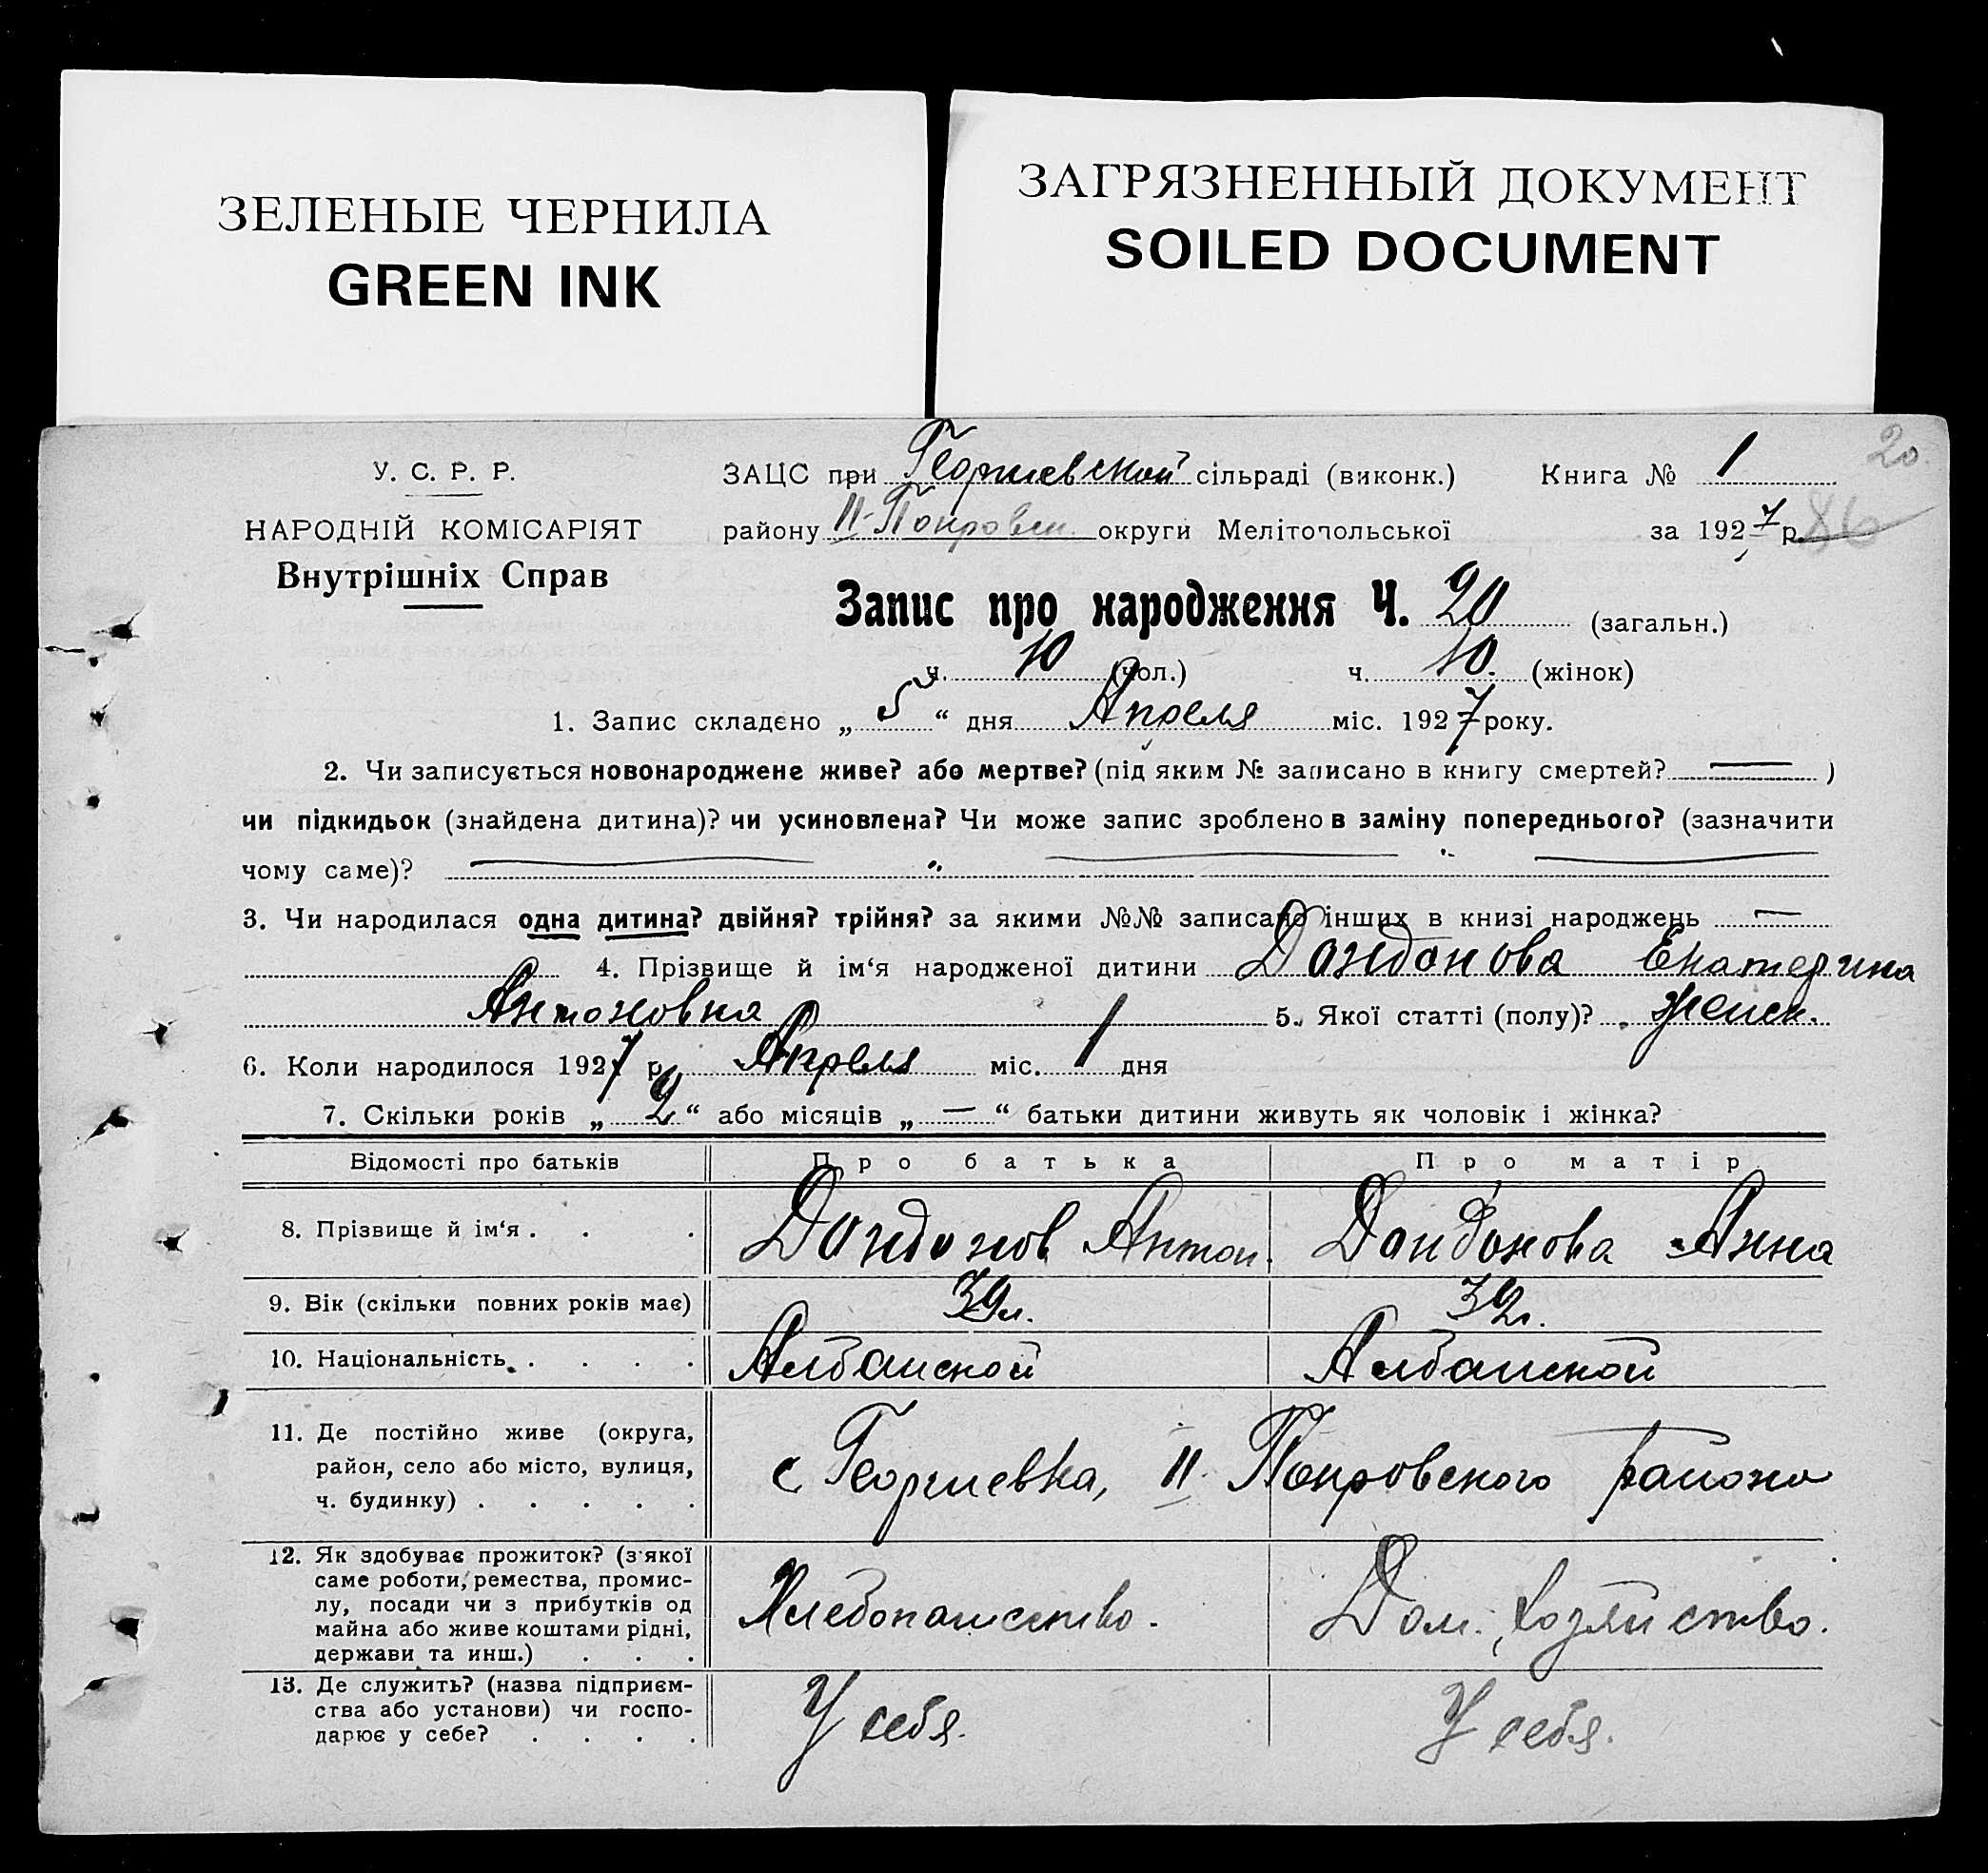 ЗЕЛЕНЫЕ ЧЕРНИЛА
GREEN INK
ЗАГРЯЗНЕННЫЙ ДОКУМЕНТ
SOILED DOCUMENT
20
У. С. Р. Р.
НАРОДНІЙ КОМІСАРІЯТ
Внутрішніх Справ
ЗАЦС при Георгиевской сільраді (виконк.) Книга № 1
району II-Покровск. округи Мелітопольської за 1927 р. 86
Запис про народження Ч. 20 (загальн.)
ч. 10 (чол.) ч. 10. (жінок)
1. Запис складено „ 5 “ дня Апреля міс. 1927 року.
2. Чи записується новонароджене живе? або мертве? (під яким № записано в книгу смертей? — )
чи підкидьок (знайдена дитина)? чи усиновлена? Чи може запис зроблено в заміну попереднього? (зазначити
чому саме)? — „ — „ —
3. Чи народилася одна дитина? двійня? трійня? за якими №№ записано інших в книзі народжень —
4. Прізвище й ім‘я народженої дитини Дондонова Екатерина
Антоновна 5. Якої статті (полу)? женск.
6. Коли народилося 1927 р. Апреля міс. 1 дня
7. Скільки років „ 2 “ або місяців „ — “ батьки дитини живуть як чоловік і жінка?
Відомості про батьків Про батька Про матір
8. Прізвище й ім‘я . . . Дондонов Антон. Дондонова Анна
9. Вік (скільки повних років має) 39 л. 32 г.
10. Національність . . . . Албанской Албанской
11. Де постійно живе (округа,
район, село або місто, вулиця,
ч. будинку) . . . . .
с Георгиевка, II Покровского района
12. Як здобуває прожиток? (з якої
саме роботи, ремества, промис-
лу, посади чи з прибутків од
майна або живе коштами рідні,
держави та инш.) . . .
Хлебопашество. Дом. хозяйство.
13. Де служить? (назва підприєм-
ства або установи) чи госпо-
дарює у себе? . . . .
У себя. У себя.